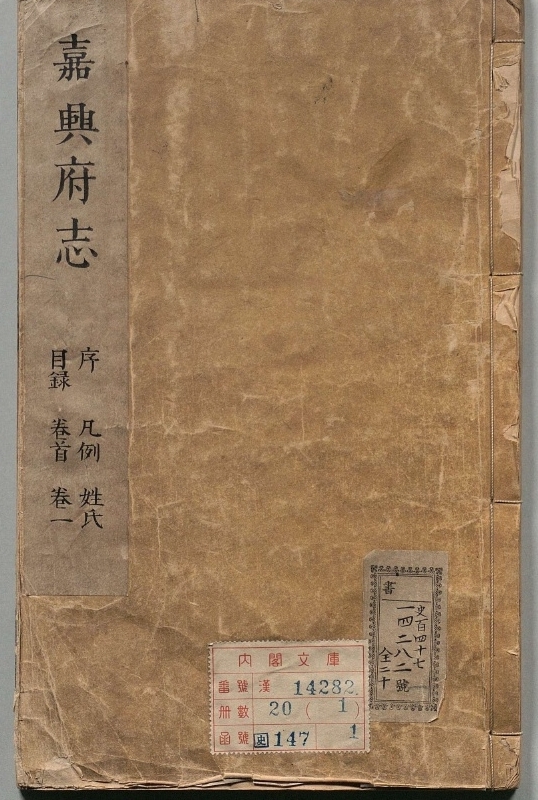 嘉興府志
序 凡例 姓氏
目録 卷首 卷一
書
史百四十七
一四二八二號
全二十
内閣文庫
番號 漢 14282
册數 20 (1)
函號 史 147 1